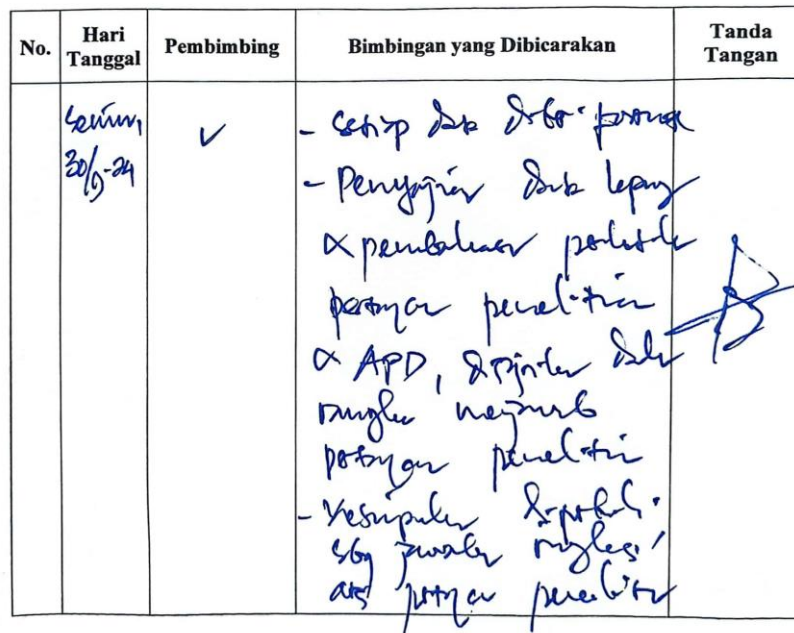 No.
Hari
Tanggal
Pembimbing
Bimbingan yang Dibicarakan
Tanda
Tangan
Senin,
30/9-24
- Setiap data diberi
- Penyajian data
& pembahasan
penelitian
& APD, disajikan dlm
rangka menjawab
pertanyaan penelitian
- Kesimpulan diperbaiki
sbg jawaban ringkas
atas pertanyaan penelitian